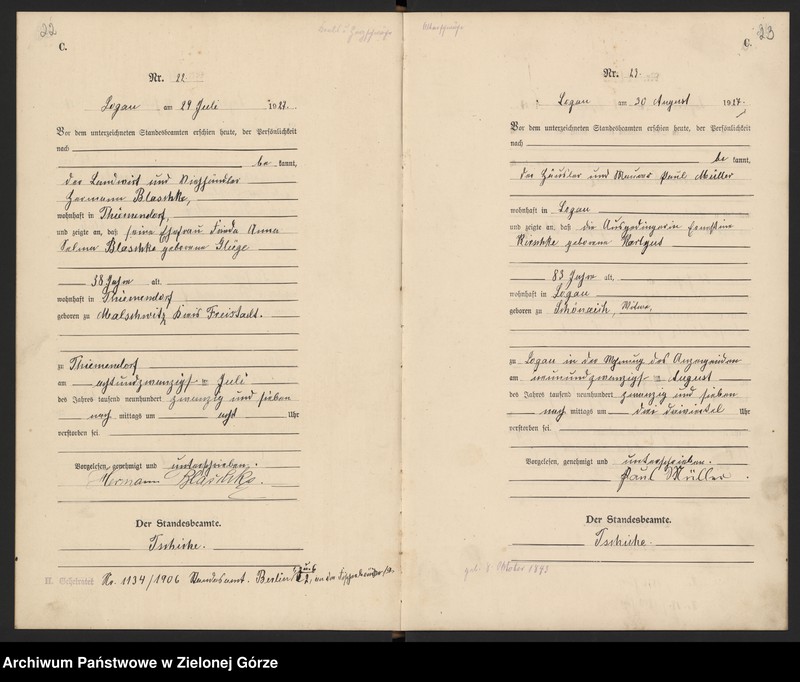 22
C.
Nr. 22
Logau am 29 Juli 1927.
Vor dem unterzeichneten Standesbeamten erschien heute, der Persönlichkeit
nach
be kannt,
der Landwirt und Viehhändler
Hermann Blaschke,
wohnhaft in Thiemendorf,
und zeigte an, daß seine Ehefrau Frida Anna
Selma Blaschke geborene Gläge
38 Jahre alt,
wohnhaft in Thiemendorf
geboren zu Malschwitz Kreis Freistadt.
zu Thiemendorf
am achtundzwanzigsten Juli
des Jahres tausend neunhundert zwanzig und sieben
nach mittags um acht Uhr
verstorben sei.
Vorgelesen, genehmigt und unterschrieben.
Hermann Blaschke.
Der Standesbeamte.
Tschiche.
H. Geheiratet Nr. 1134/1906 Standesamt Berlin
23
C.
Nr. 23
Logau am 30 August 1927.
Vor dem unterzeichneten Standesbeamten erschien heute, der Persönlichkeit
nach
be kannt,
der Häusler und Maurer Paul Müller
wohnhaft in Logau
und zeigte an, daß die Ausgedingerin Ernestine
Kirschke geborene Markgut
83 Jahre alt,
wohnhaft in Logau
geboren zu Schönaich, Witwe,
zu Logau in der Wohnung des Anzeigenden
am neunundzwanzigsten August
des Jahres tausend neunhundert zwanzig und sieben
nach mittags um drei dreiviertel Uhr
verstorben sei.
Vorgelesen, genehmigt und unterschrieben.
Paul Müller.
Der Standesbeamte.
Tschiche.
geb. 8 Oktober 1843
Archiwum Państwowe w Zielonej Górze